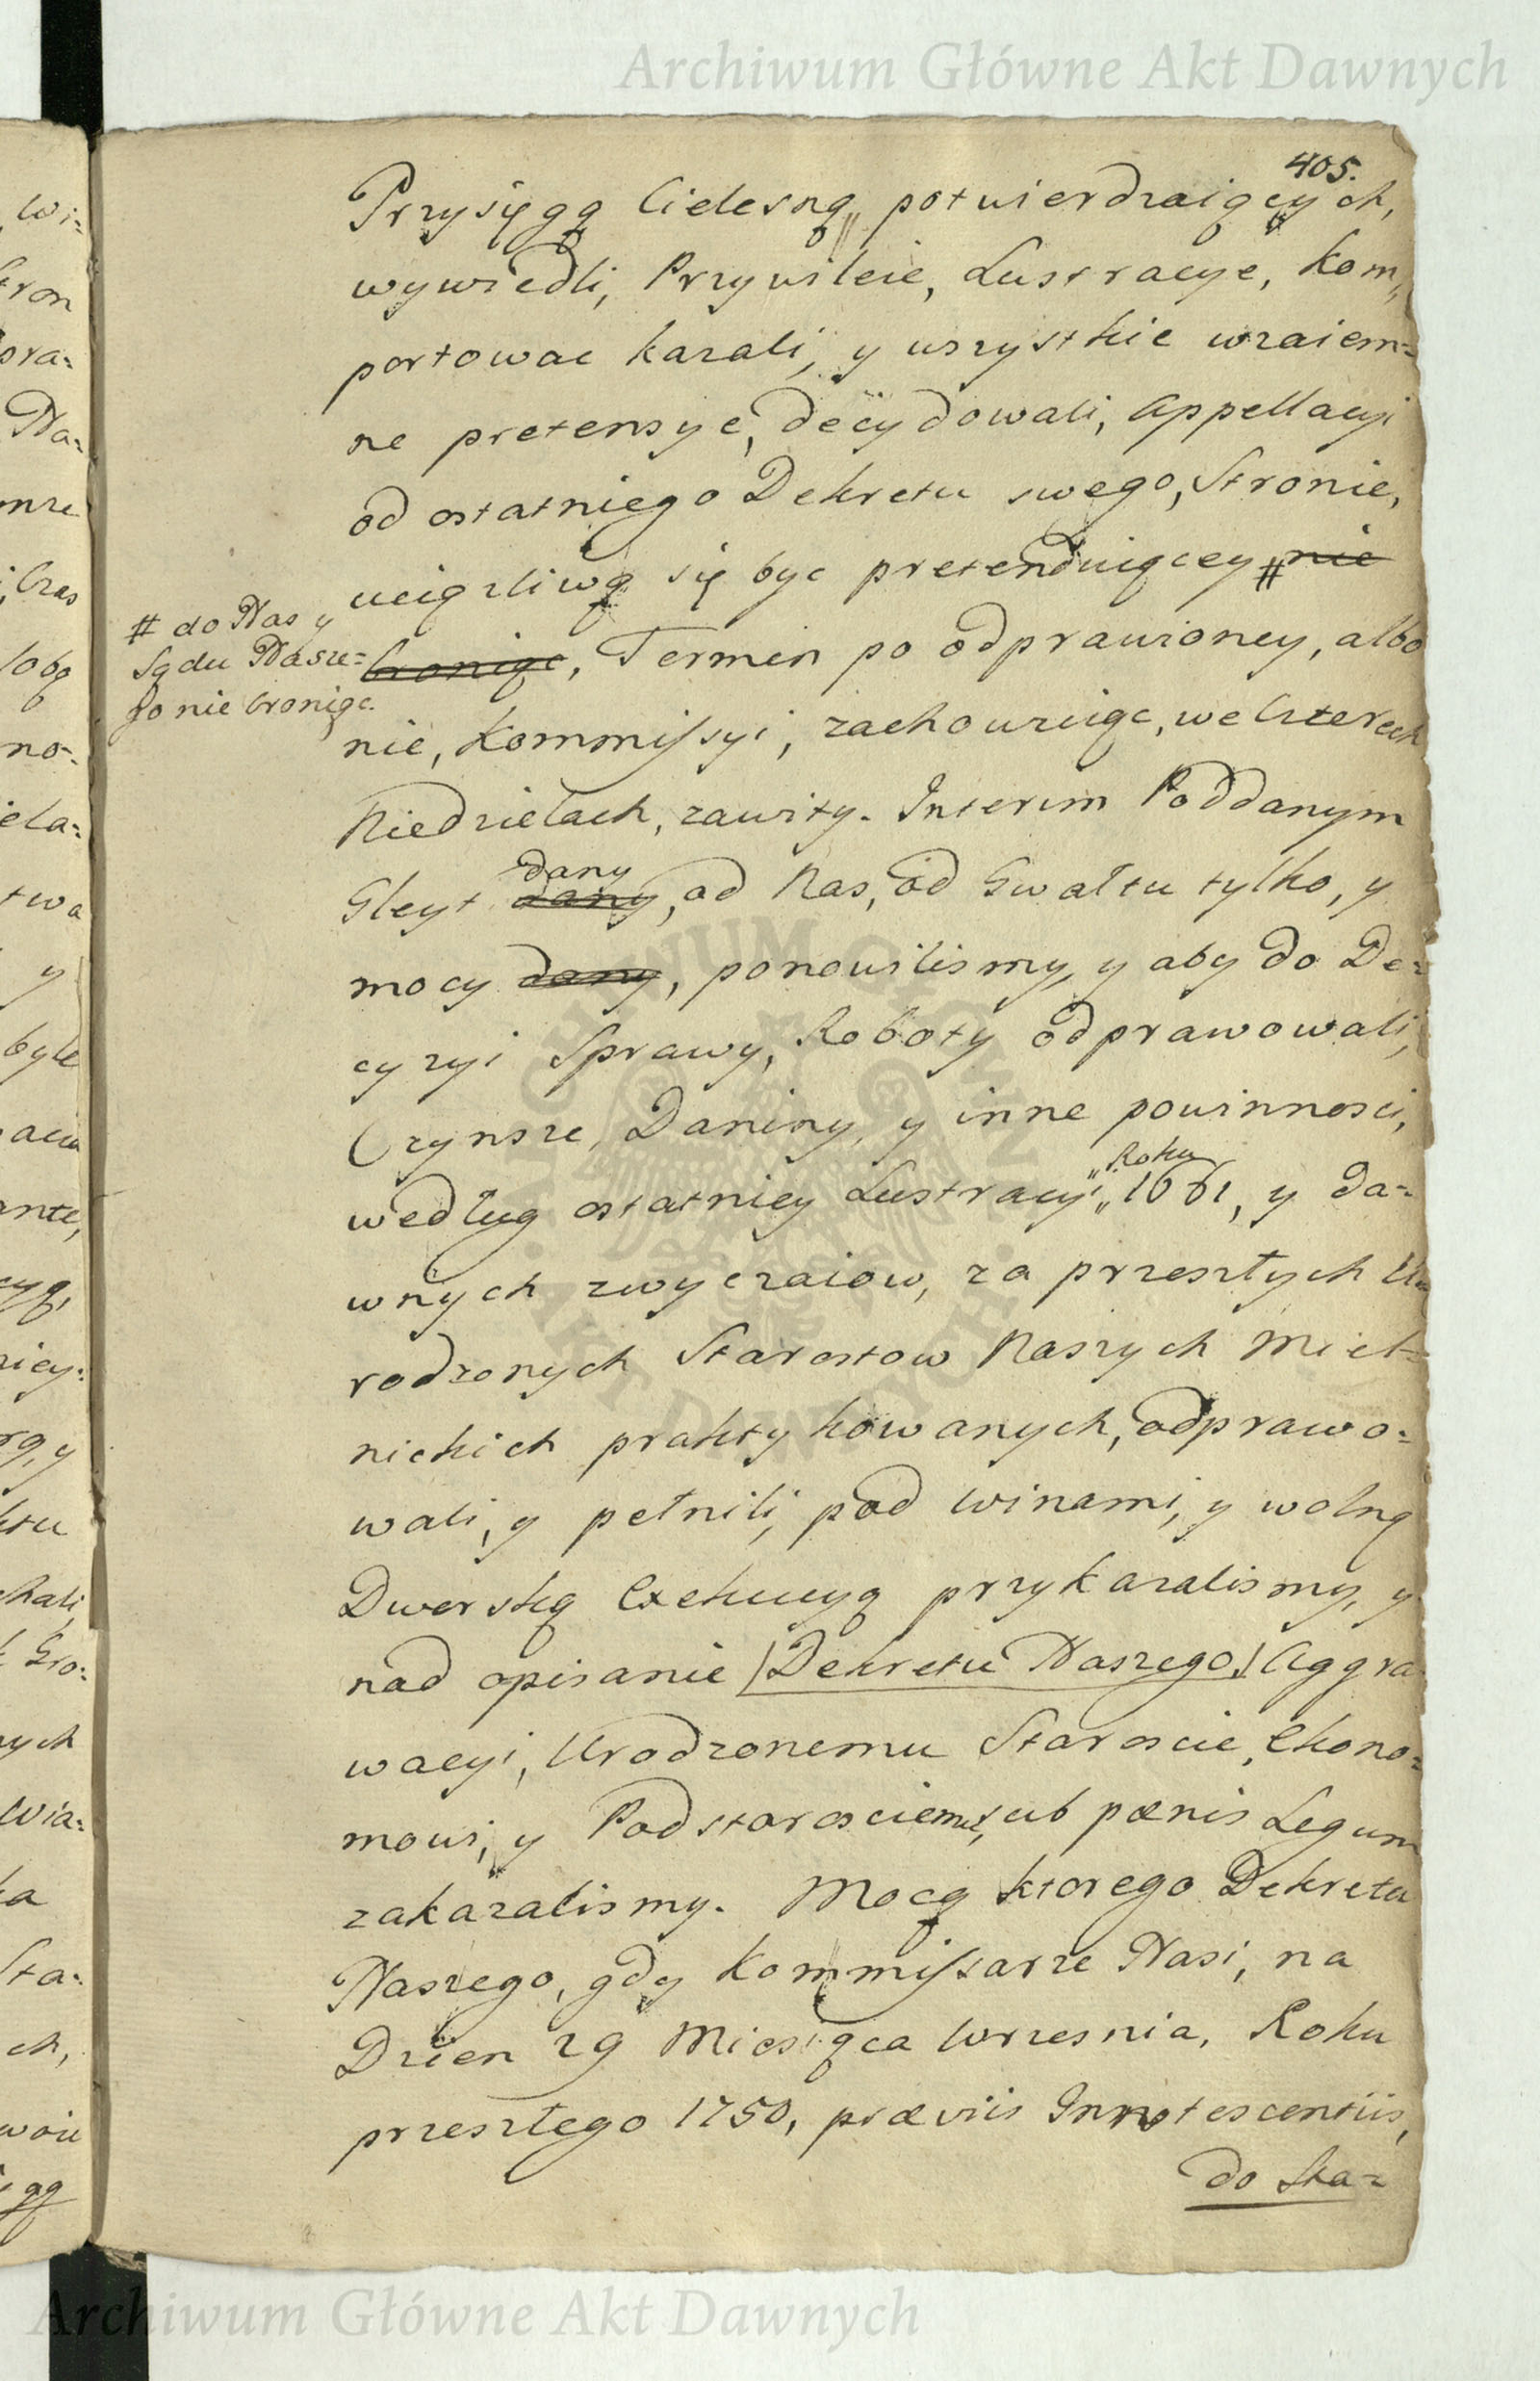 Archiwum Główne Akt Dawnych
405.
Przysięgą Cielesną, potwierdzaiących,
wywiedli, Przywileie, Lustracye, Kom„
portowac kazali, y wszystkie wzaiem=
ne pretensye, decydowali, Appellacyi
od ostatniego Dekretu swego, Stronie,
uciązliwą się byc pretenduiącey # nie
# do Nas y
Sądu Nasze=
go nie broniąc.
broniąc, Termin po odprawioney, albo
nie, Kommissyi, zachowuiąc, we Czterech
Niedzielach, zawity. Interim Poddanym
dany
Gleyt dany, od Nas, od Gwałtu tylko, y
mocy dany, ponowilismy, y aby do De=
cyzyi Sprawy, Roboty odprawowali,
Czynsze, Daniny, y inne powinnosci,
Roku
według ostatniey Lustracyi „ 1661, y da=
wnych zwyczaiow, za przeszłych U=
rodzonych Starostow Naszych Miel=
nickich praktykowanych, odprawo=
wali, y pełnili, pod winami, y wolną
Dworską Exekucyą przykazalismy, y
nad opisanie (Dekretu Naszego,) Aggra
wacyi, Urodzonemu Staroscie, Ekono=
mowi, y Podstarosciemu, sub pœnis Legum
zakazalismy. Mocą ktorego Dekretu
Naszego, gdy Kommissarze Nasi, na
Dzien 29 Miesiąca Wrzesnia, Roku
przeszłego 1750, præviis Innotescentiis,
do Sta=
Archiwum Główne Akt Dawnych